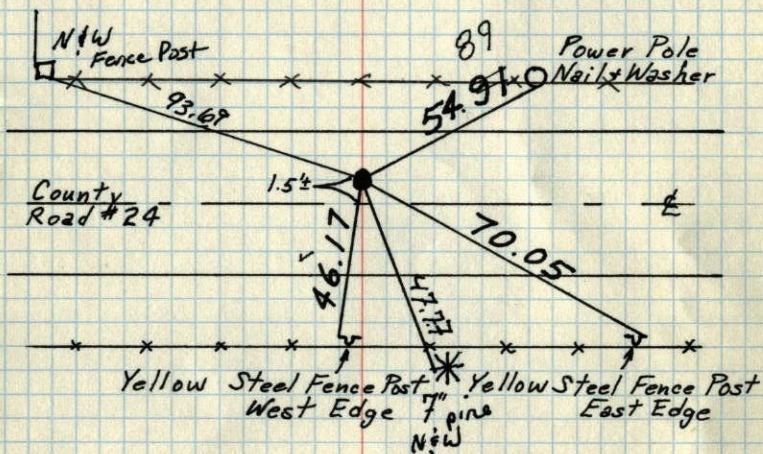 N&W
Fence Post
89
Power Pole
Nail & Washer
93.69
54.91
1.5'±
County
Road #24
℄
46.17
47.77
70.05
Yellow Steel Fence Post
West Edge
7"
pine
N&W
Yellow Steel Fence Post
East Edge